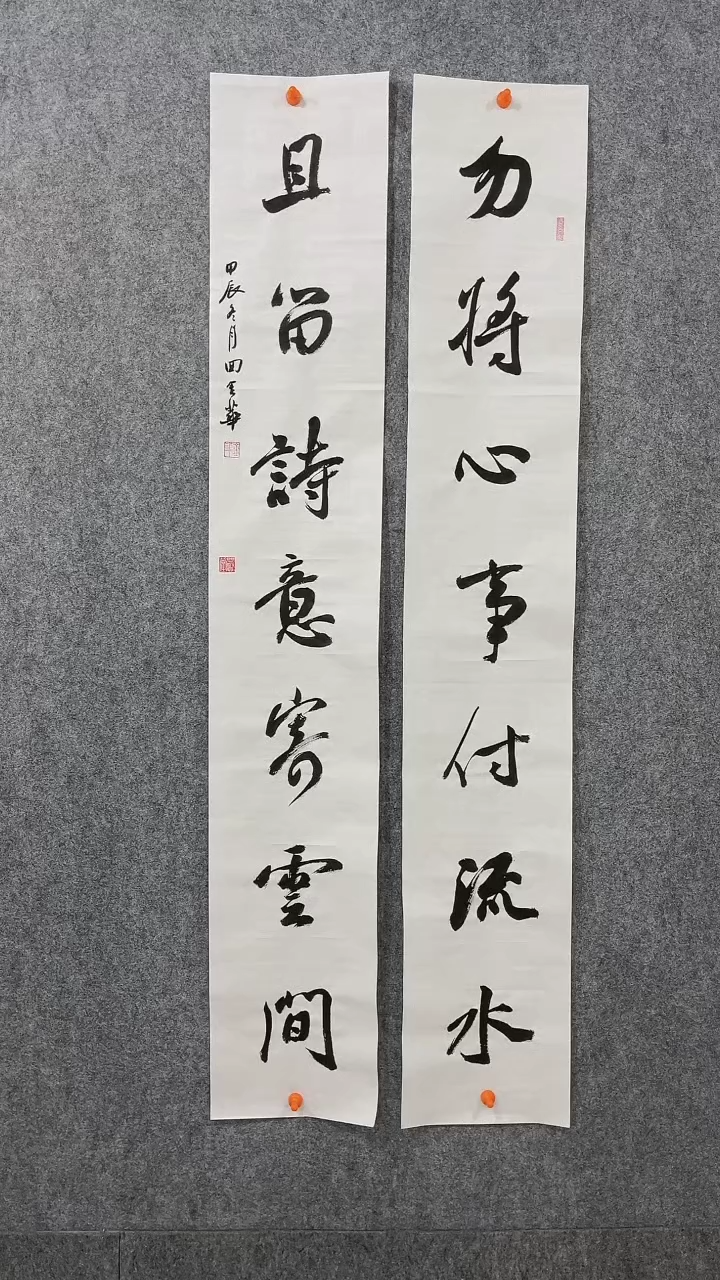 勿将心事付流水
且留詩意寄雲間
甲辰冬月田玉華